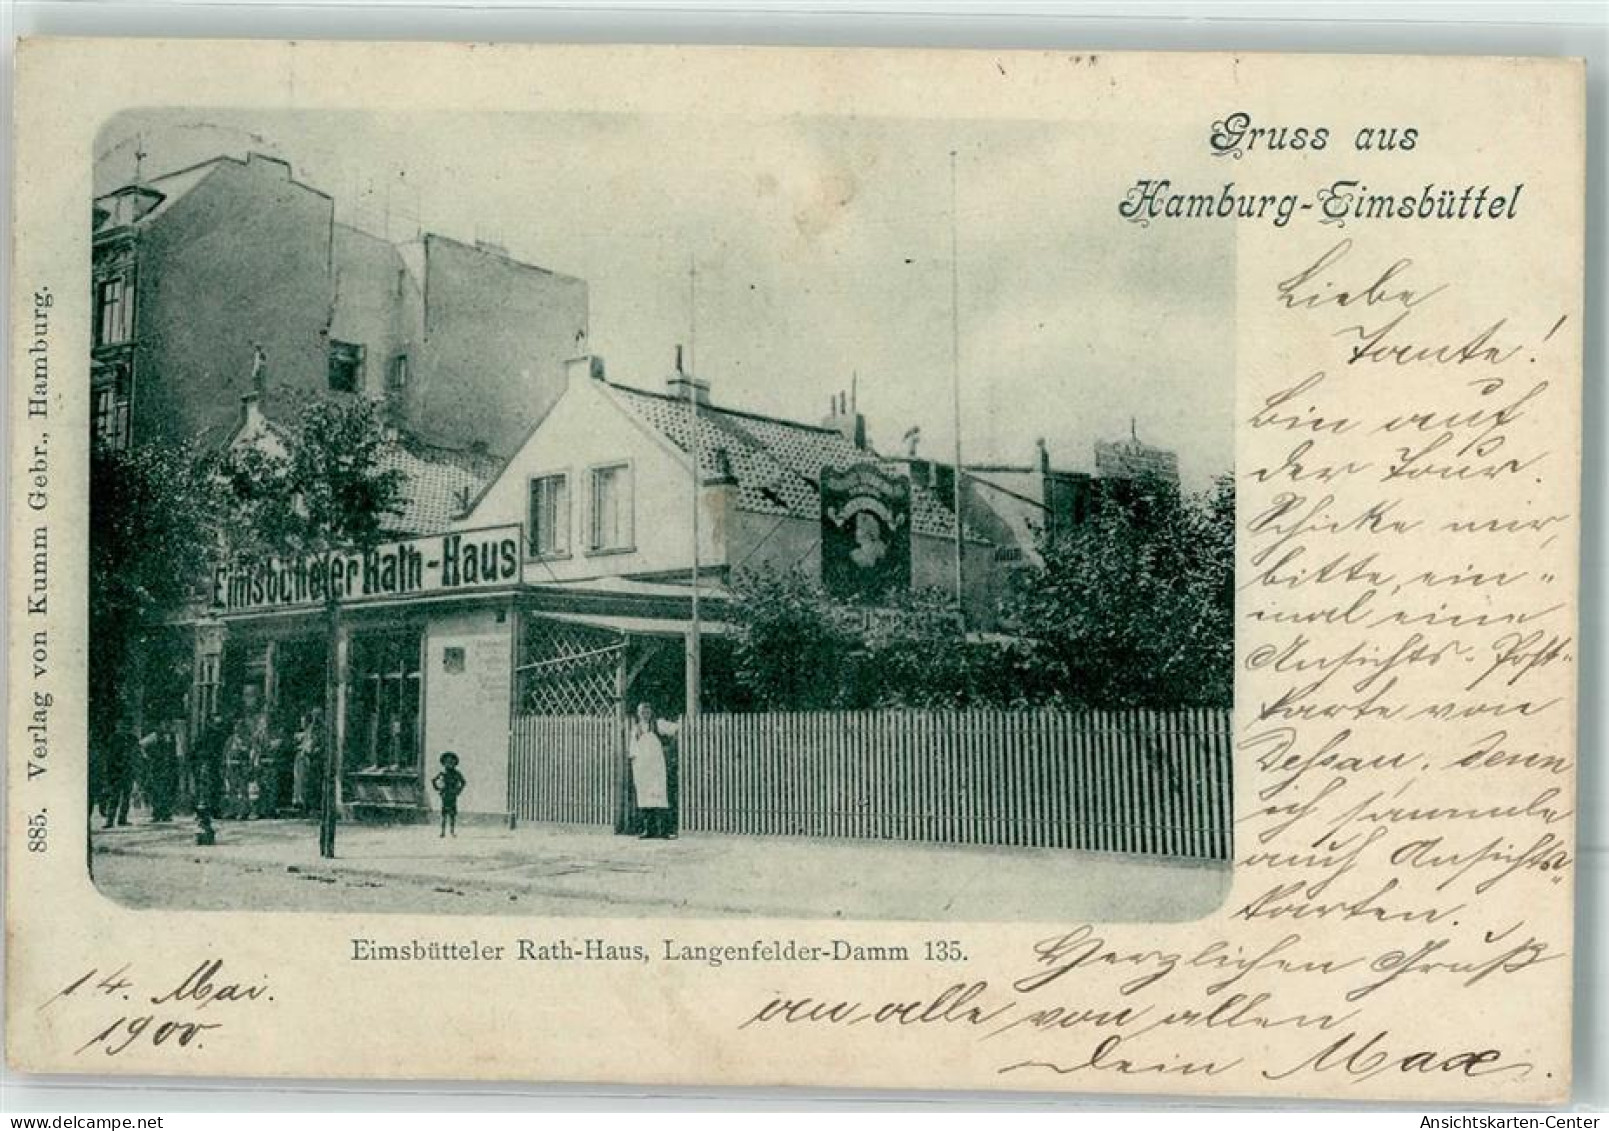 Gruss aus
Hamburg-Eimsbüttel
Liebe
Tante!
Bin auf
der Tour.
Schicke mir,
bitte, ein-
mal eine
Ansichts-Post-
karte von
Dessau. Denn
ich sammle
auch Ansichts-
karten.
Herzlichen Gruß
an alle von allen
Dein Max.
Eimsbütteler Rath-Haus
Eimsbütteler Rath-Haus, Langenfelder-Damm 135.
14. Mai.
1900.
885. Verlag von Kumm Gebr., Hamburg.
Ansichtskarten-Center